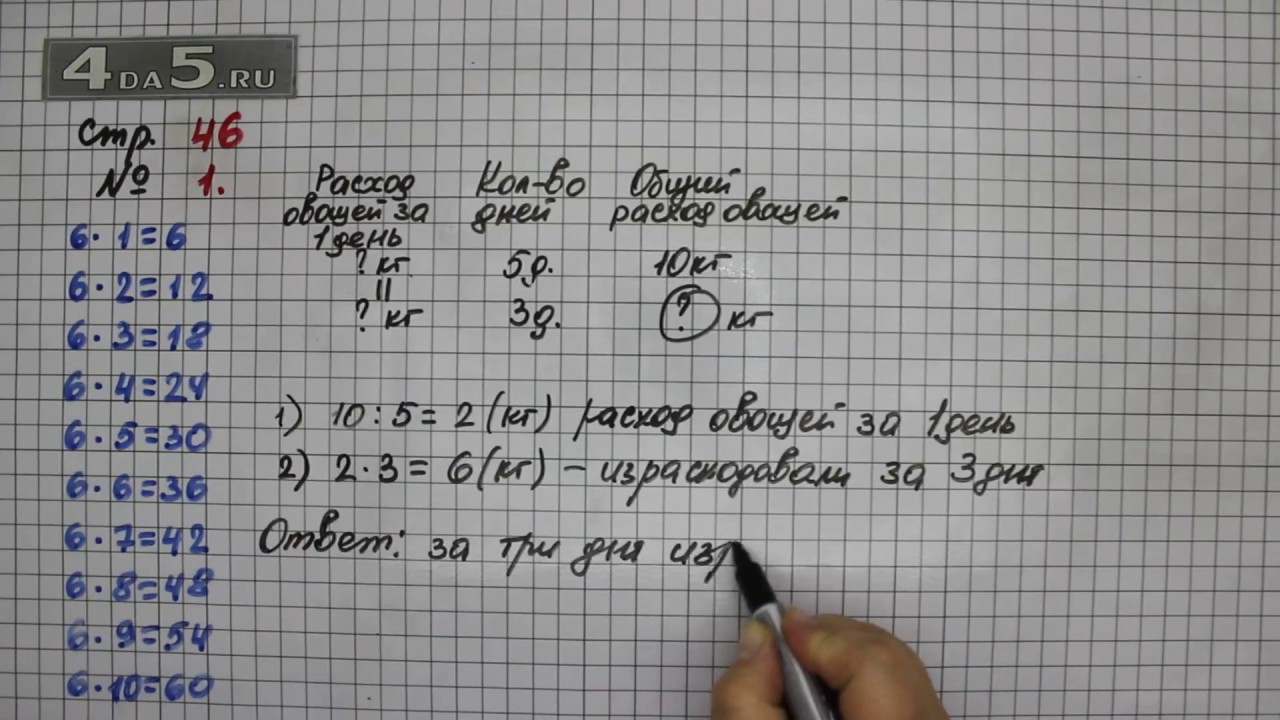 4DA5.RU
Стр. 46
№ 1.
6·1=6
6·2=12
6·3=18
6·4=24
6·5=30
6·6=36
6·7=42
6·8=48
6·9=54
6·10=60
Расход Кол-во Общий
овощей за дней расход овощей
1 день
? кг 5д. 10кг
||
? кг 3д. ? кг
1) 10:5=2(кг) расход овощей за 1 день
2) 2·3=6(кг) – израсходовали за 3 дня
Ответ: за три дня изр